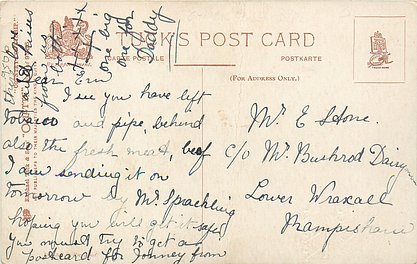 TUCK'S POST CARD
CARTE POSTALE
POSTKARTE
(FOR ADDRESS ONLY.)
one big
one for
Daddy
Dear Ern
I see you have left
tobacco and pipe, behind
also the fresh meat, beef
I am sending it on
Tomorrow by Mr Sprackling
hoping you will get it safe,
you must try & get a
postcard for Johney from
Mr E Stone
c/o Mr Bushrod Dairy
Lower Wraxall
Rampisham